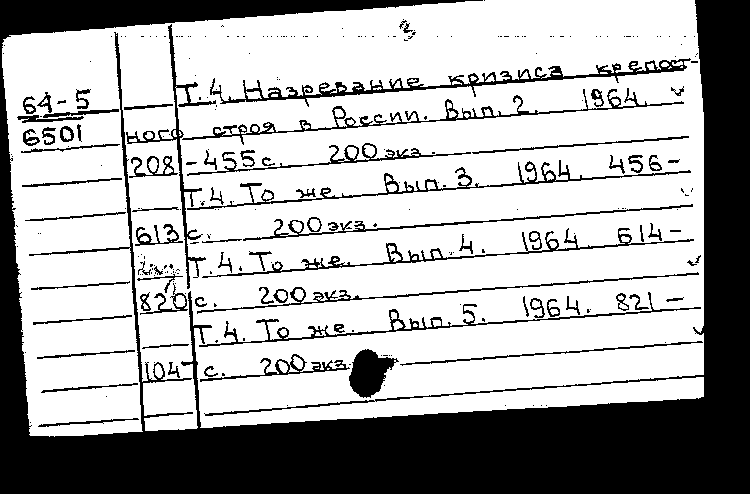 3
64-5 Т.4. Назревание кризиса крепост-
6501 ного строя в России. Вып. 2. 1964.
208-455 с. 200 экз.
Т.4. То же. Вып. 3. 1964. 456-
613 с. 200 экз.
Т.4. То же. Вып. 4. 1964. 614-
820 с. 200 экз.
Т.4. То же. Вып. 5. 1964. 821-
1047 с. 200 экз.